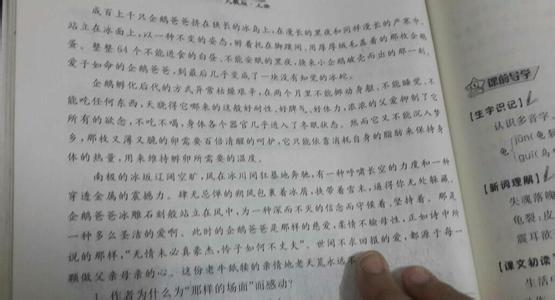 成百上千只企鹅爸爸挤在狭长的冰岛上,在漫长的黑夜和同样漫长的严寒中,
站立在冰面上,以一种不变的姿态,孵着托在脚蹼间、用厚厚绒毛盖着的那枚企鹅
蛋。整整64个不能进食的白昼、不能安眠的黑夜,换来小企鹅破壳而出的那一刻,
爱子如命的企鹅爸爸,到最后几乎变成了一块没有知觉的冰蛇。
企鹅孵化后代的方式异常枯燥艰辛,在两个月里不能挪动身躯,不能睡觉,不
能吃任何东西,天晓得它哪来的这般好耐性、好脾气、好体力,浓浓的父爱抑制了它
所有的欲念,不吃不喝,身体各个器官几乎进入了冬眠状态。然而它又不能沉入梦
乡,那枚又薄又脆的卵需要百倍清醒的呵护,它只能依靠消耗自身的脂肪来保持身
体的热量,用来维持孵卵所需要的温度。
南极的冰坂辽阔空旷,风在冰川间狂暴地奔驰,有一种呼啸长空的力度和一种
穿透金属的震撼力。肆无忌惮的朔风包裹着冰屑,挟带着雪末,逼得你无处躲藏。
企鹅爸爸冰雕石刻般站立在风中,为一种深而不灭的信念而守候着,坚持着。那是
一种多么圣洁的爱啊。此时的企鹅爸爸是那样的慈爱,柔情不输母性,正如诗中所
说的那样,“无情未必真豪杰,怜子如何不丈夫”。世间不求回报的爱,都源于每一
颗做父亲母亲的心。这份老牛舐犊的亲情地老天荒永远不
1. 作者为什么为“那样的场面”而感动?
课前导学
【生字识记】
认识多音字。
龟
jūn(龟
guī(乌
【新词理解】
失魂落魄
龟裂:皮
震耳欲
【课文初读】
生活